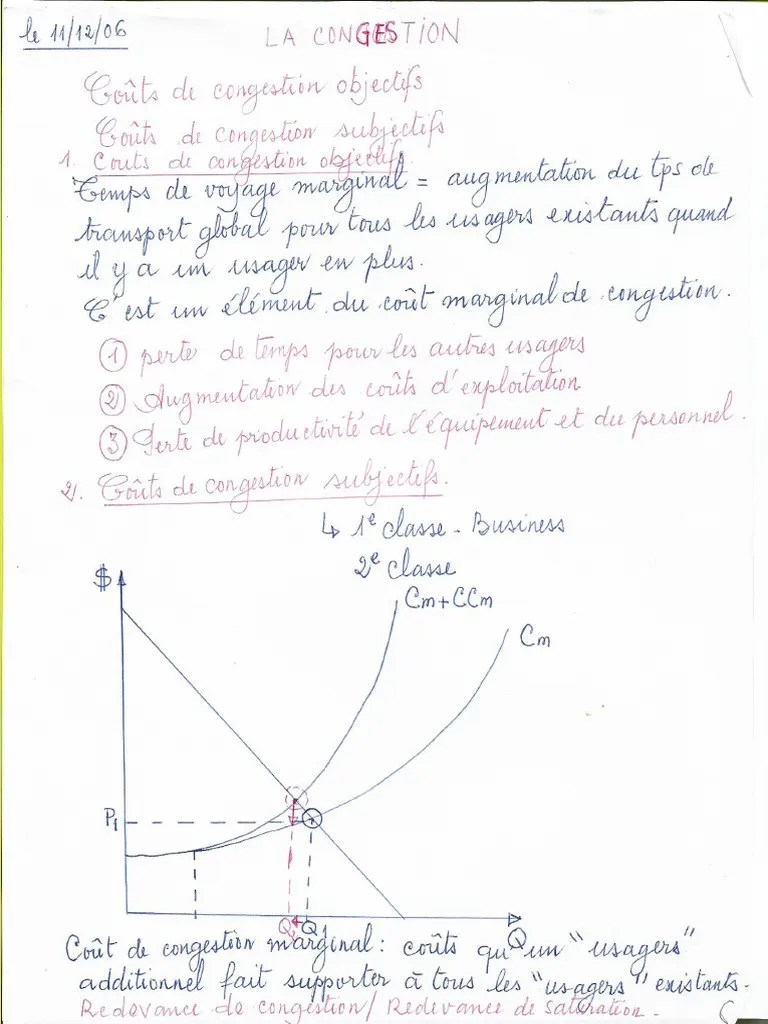 le 11/12/06
LA CONGESTION
Coûts de congestion objectifs
Coûts de congestion subjectifs
1. Couts de congestion objectifs.
Temps de voyage marginal = augmentation du tps de
transport global pour tous les usagers existants quand
il y a un usager en plus.
C'est un élément du coût marginal de congestion.
① perte de temps pour les autres usagers
② Augmentation des coûts d'exploitation
③ Perte de productivité de l'équipement et du personnel.
2. Coûts de congestion subjectifs.
↳ 1e classe - Business
2e classe
$
Cm+CCm
Cm
P1
Q2 Q1
Q
Coût de congestion marginal : coûts qu'un "usagers"
additionnel fait supporter à tous les "usagers" existants.
Redevance de congestion / Redevance de saturation.